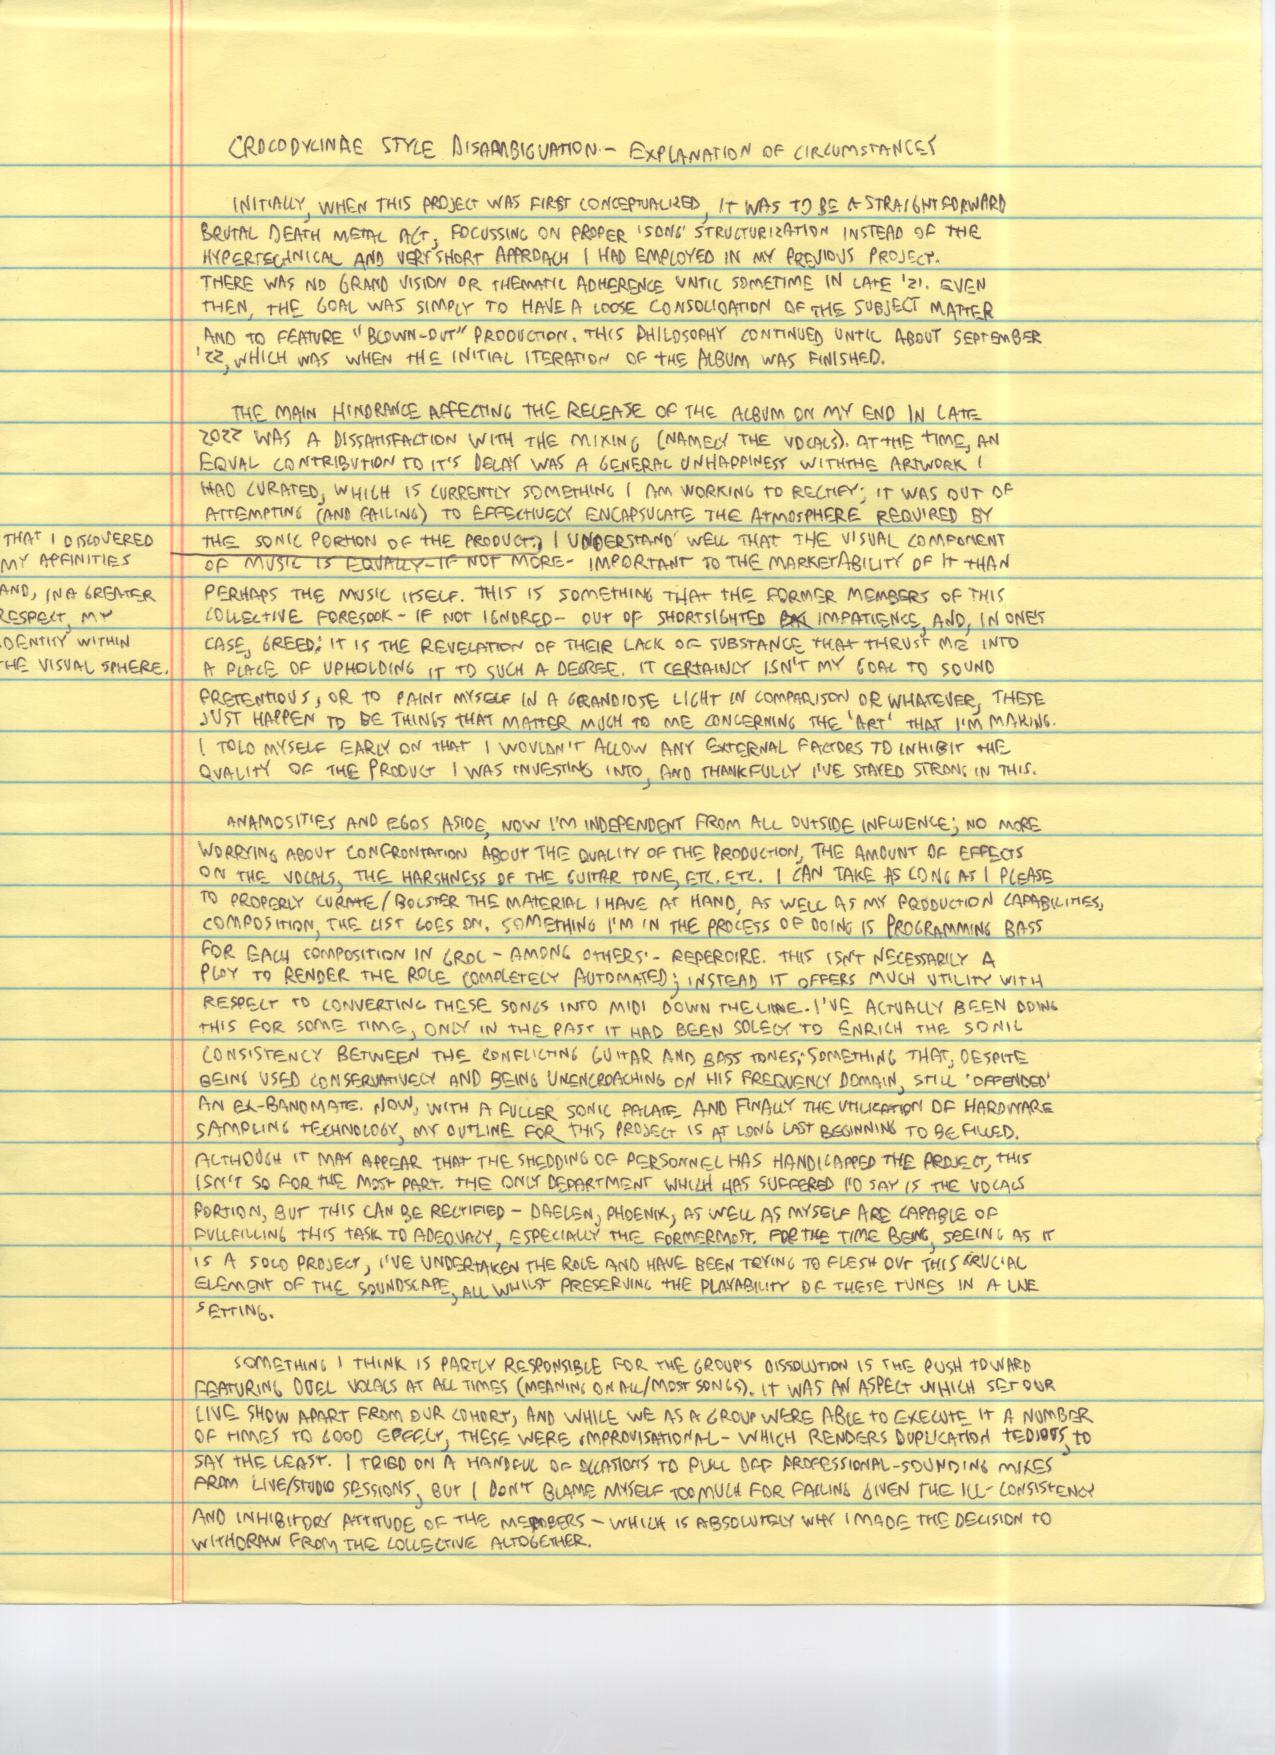 CROCODYLINAE STYLE DISAMBIGUATION - EXPLANATION OF CIRCUMSTANCES
INITIALLY, WHEN THIS PROJECT WAS FIRST CONCEPTUALIZED, IT WAS TO BE A STRAIGHTFORWARD
BRUTAL DEATH METAL ACT, FOCUSSING ON PROPER 'SONG' STRUCTURIZATION INSTEAD OF THE
HYPERTECHNICAL AND VERY SHORT APPROACH I HAD EMPLOYED IN MY PREVIOUS PROJECT.
THERE WAS NO GRAND VISION OR THEMATIC ADHERENCE UNTIL SOMETIME IN LATE '21. EVEN
THEN, THE GOAL WAS SIMPLY TO HAVE A LOOSE CONSOLIDATION OF THE SUBJECT MATTER
AND TO FEATURE "BLOWN-OUT" PRODUCTION. THIS PHILOSOPHY CONTINUED UNTIL ABOUT SEPTEMBER
'22, WHICH WAS WHEN THE INITIAL ITERATION OF THE ALBUM WAS FINISHED.
THE MAIN HINDRANCE AFFECTING THE RELEASE OF THE ALBUM ON MY END IN LATE
2022 WAS A DISSATISFACTION WITH THE MIXING (NAMELY THE VOCALS). AT THE TIME, AN
EQUAL CONTRIBUTION TO IT'S DELAY WAS A GENERAL UNHAPPINESS WITH THE ARTWORK I
HAD CURATED, WHICH IS CURRENTLY SOMETHING I AM WORKING TO RECTIFY; IT WAS OUT OF
ATTEMPTING (AND FAILING) TO EFFECTIVELY ENCAPSULATE THE ATMOSPHERE REQUIRED BY
THE SONIC PORTION OF THE PRODUCT.) I UNDERSTAND WELL THAT THE VISUAL COMPONENT
THAT I DISCOVERED
MY AFFINITIES
AND, IN A GREATER
RESPECT, MY
IDENTITY WITHIN
THE VISUAL SPHERE.
OF MUSIC IS EQUALLY - IF NOT MORE - IMPORTANT TO THE MARKETABILITY OF IT THAN
PERHAPS THE MUSIC ITSELF. THIS IS SOMETHING THAT THE FORMER MEMBERS OF THIS
COLLECTIVE FORESOOK - IF NOT IGNORED - OUT OF SHORTSIGHTED IMPATIENCE, AND, IN ONE'S
CASE, GREED; IT IS THE REVELATION OF THEIR LACK OF SUBSTANCE THAT THRUST ME INTO
A PLACE OF UPHOLDING IT TO SUCH A DEGREE. IT CERTAINLY ISN'T MY GOAL TO SOUND
PRETENTIOUS, OR TO PAINT MYSELF IN A GRANDIOSE LIGHT IN COMPARISON OR WHATEVER, THESE
JUST HAPPEN TO BE THINGS THAT MATTER MUCH TO ME CONCERNING THE 'ART' THAT I'M MAKING.
I TOLD MYSELF EARLY ON THAT I WOULDN'T ALLOW ANY EXTERNAL FACTORS TO INHIBIT THE
QUALITY OF THE PRODUCT I WAS INVESTING INTO, AND THANKFULLY I'VE STAYED STRONG IN THIS.
ANAMOSITIES AND EGOS ASIDE, NOW I'M INDEPENDENT FROM ALL OUTSIDE INFLUENCE; NO MORE
WORRYING ABOUT CONFRONTATION ABOUT THE QUALITY OF THE PRODUCTION, THE AMOUNT OF EFFECTS
ON THE VOCALS, THE HARSHNESS OF THE GUITAR TONE, ETC. ETC. I CAN TAKE AS LONG AS I PLEASE
TO PROPERLY CURATE/BOLSTER THE MATERIAL I HAVE AT HAND, AS WELL AS MY PRODUCTION CAPABILITIES,
COMPOSITION, THE LIST GOES ON. SOMETHING I'M IN THE PROCESS OF DOING IS PROGRAMMING BASS
FOR EACH COMPOSITION IN CROC - AMONG OTHERS' - REPEROIRE. THIS ISN'T NECESSARILY A
PLOY TO RENDER THE ROLE COMPLETELY AUTOMATED; INSTEAD IT OFFERS MUCH UTILITY WITH
RESPECT TO CONVERTING THESE SONGS INTO MIDI DOWN THE LINE. I'VE ACTUALLY BEEN DOING
THIS FOR SOME TIME, ONLY IN THE PAST IT HAD BEEN SOLELY TO ENRICH THE SONIC
CONSISTENCY BETWEEN THE CONFLICTING GUITAR AND BASS TONES; SOMETHING THAT, DESPITE
BEING USED CONSERVATIVELY AND BEING UNENCROACHING ON HIS FREQUENCY DOMAIN, STILL 'OFFENDED'
AN EX-BANDMATE. NOW, WITH A FULLER SONIC PALATE AND FINALLY THE UTILICATION OF HARDWARE
SAMPLING TECHNOLOGY, MY OUTLINE FOR THIS PROJECT IS AT LONG LAST BEGINNING TO BE FILLED.
ALTHOUGH IT MAY APPEAR THAT THE SHEDDING OF PERSONNEL HAS HANDICAPPED THE PROJECT, THIS
ISN'T SO FOR THE MOST PART. THE ONLY DEPARTMENT WHICH HAS SUFFERED I'D SAY IS THE VOCALS
PORTION, BUT THIS CAN BE RECTIFIED - DAELEN, PHOENIX, AS WELL AS MYSELF ARE CAPABLE OF
FULLFILLING THIS TASK TO ADEQUACY, ESPECIALLY THE FORMERMOST. FOR THE TIME BEING, SEEING AS IT
IS A SOLO PROJECT, I'VE UNDERTAKEN THE ROLE AND HAVE BEEN TRYING TO FLESH OUT THIS CRUCIAL
ELEMENT OF THE SOUNDSCAPE, ALL WHILST PRESERVING THE PLAYABILITY OF THESE TUNES IN A LIVE
SETTING.
SOMETHING I THINK IS PARTLY RESPONSIBLE FOR THE GROUP'S DISSOLUTION IS THE PUSH TOWARD
FEATURING DUEL VOCALS AT ALL TIMES (MEANING ON ALL/MOST SONGS). IT WAS AN ASPECT WHICH SET OUR
LIVE SHOW APART FROM OUR COHORT, AND WHILE WE AS A GROUP WERE ABLE TO EXECUTE IT A NUMBER
OF TIMES TO GOOD EFFECT, THESE WERE IMPROVISATIONAL - WHICH RENDERS DUPLICATION TEDIOUS, TO
SAY THE LEAST. I TRIED ON A HANDFUL OF OCCATIONS TO PULL OFF PROFESSIONAL-SOUNDING MIXES
FROM LIVE/STUDIO SESSIONS, BUT I DON'T BLAME MYSELF TOO MUCH FOR FAILING GIVEN THE ILL-CONSISTENCY
AND INHIBITORY ATTITUDE OF THE MEMBERS - WHICH IS ABSOLUTELY WHY I MADE THE DECISION TO
WITHDRAW FROM THE COLLECTIVE ALTOGETHER.